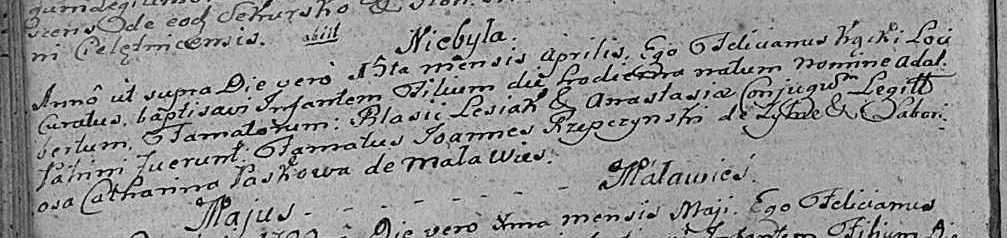 szens de eod Sekursko &
ni Celętnicensis. abiit
Niebyla.
Annô ut supra Die verò 15ta mensis Aprilis. Ego Felicianus Kącki Loci
Curatus, baptisavi Infantem Filium die hodierna natum nomine Adal-
bertum. Famatorum: Blasii Lesiak & Anastasiæ Conjugum Legitt
Patrini fuerunt: Famatus Joannes Rzepczynski de Zytne & Labori-
osa Catharina Paskowa de Mała Wies.
Majus - - - - - - - Maławieś.
Die vero mensis Maji. Ego Felicianus
Infantem Filium